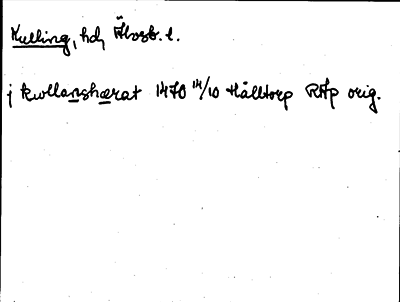 Kulling, hd, Älvsb. l.
j kwllanshærat 1470 14/10 Hålltorp RAp orig.